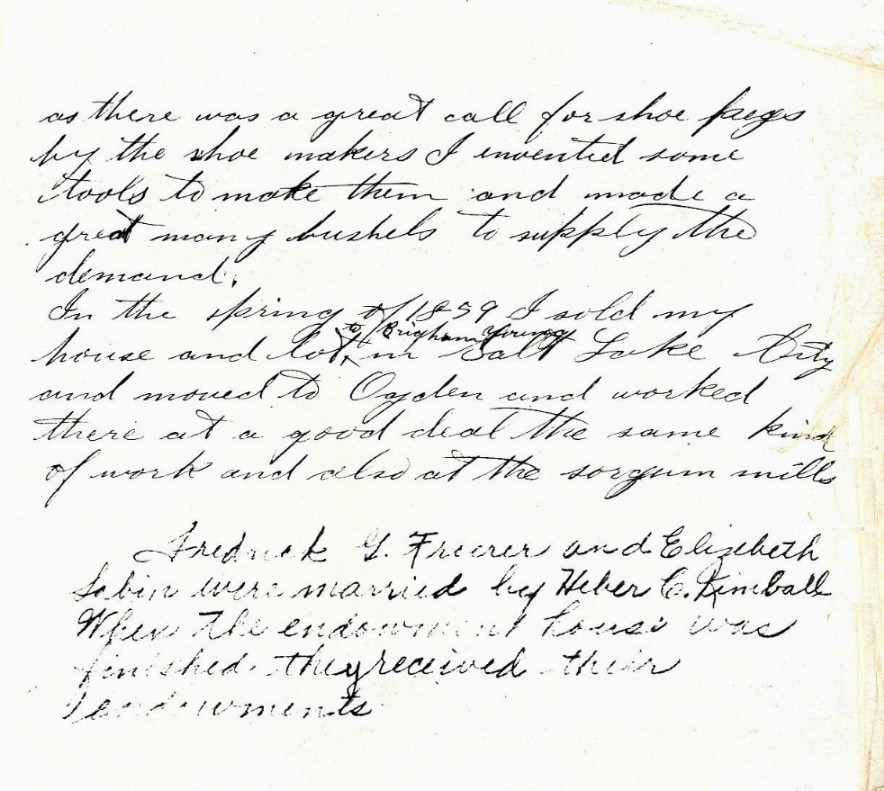 as there was a great call for shoe pegs
by the shoe makers I invented some
tools to make them and made a
great many bushels to supply the
demand.
In the spring of 1859 I sold my
to Brigham Young
house and lot in Salt Lake City
and moved to Ogden and worked
there at a good deal the same kind
of work and also at the sorgum mills
Fredrick G. Freerer and Elizebeth
Sabin were married by Heber C. Kimball
When the endowment house was
finished they received their
endowments